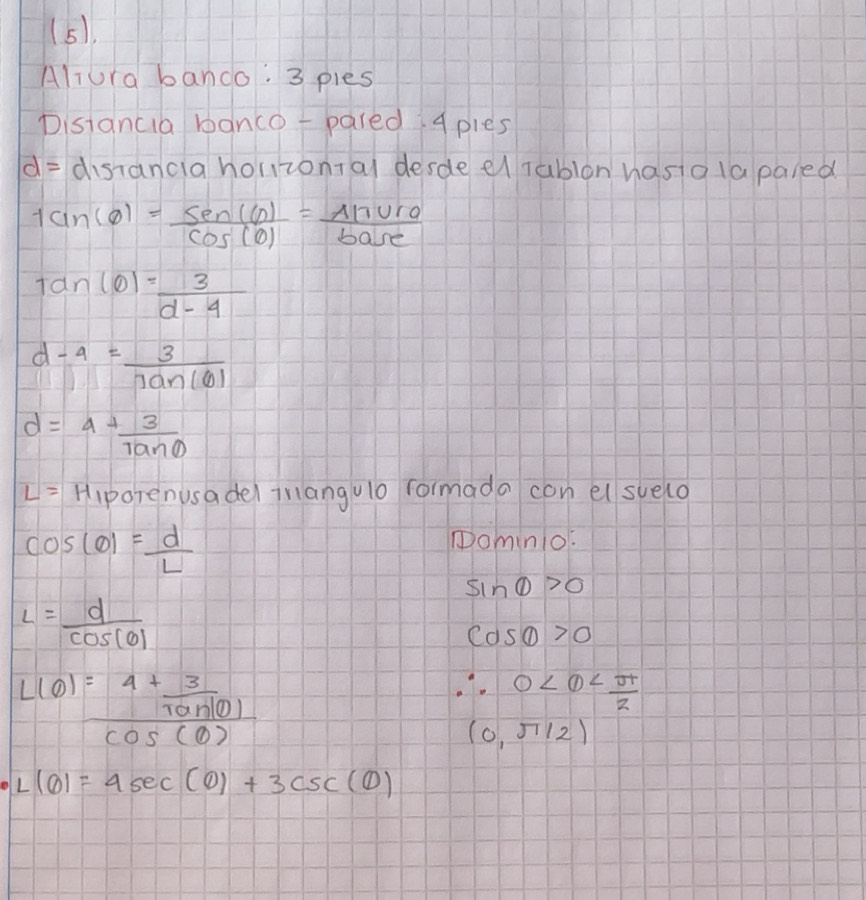 (5).
Altura banco: 3 pies
Distancia banco - pared: 4 pies
d = distancia horizontal desde el tablon hasta la pared
tan(θ) = sen(θ)/cos(θ) = Altura/base
tan(θ) = 3/(d-4)
d-4 = 3/tan(θ)
d = 4 + 3/tanθ
L = Hipotenusa del triangulo formado con el suelo
cos(θ) = d/L
L = d/cos(θ)
L(θ) = (4 + 3/tan(θ))/cos(θ)
L(θ) = 4sec(θ) + 3csc(θ)
Dominio:
sinθ > 0
cosθ > 0
∴ 0 < θ < π/2
(0, π/2)